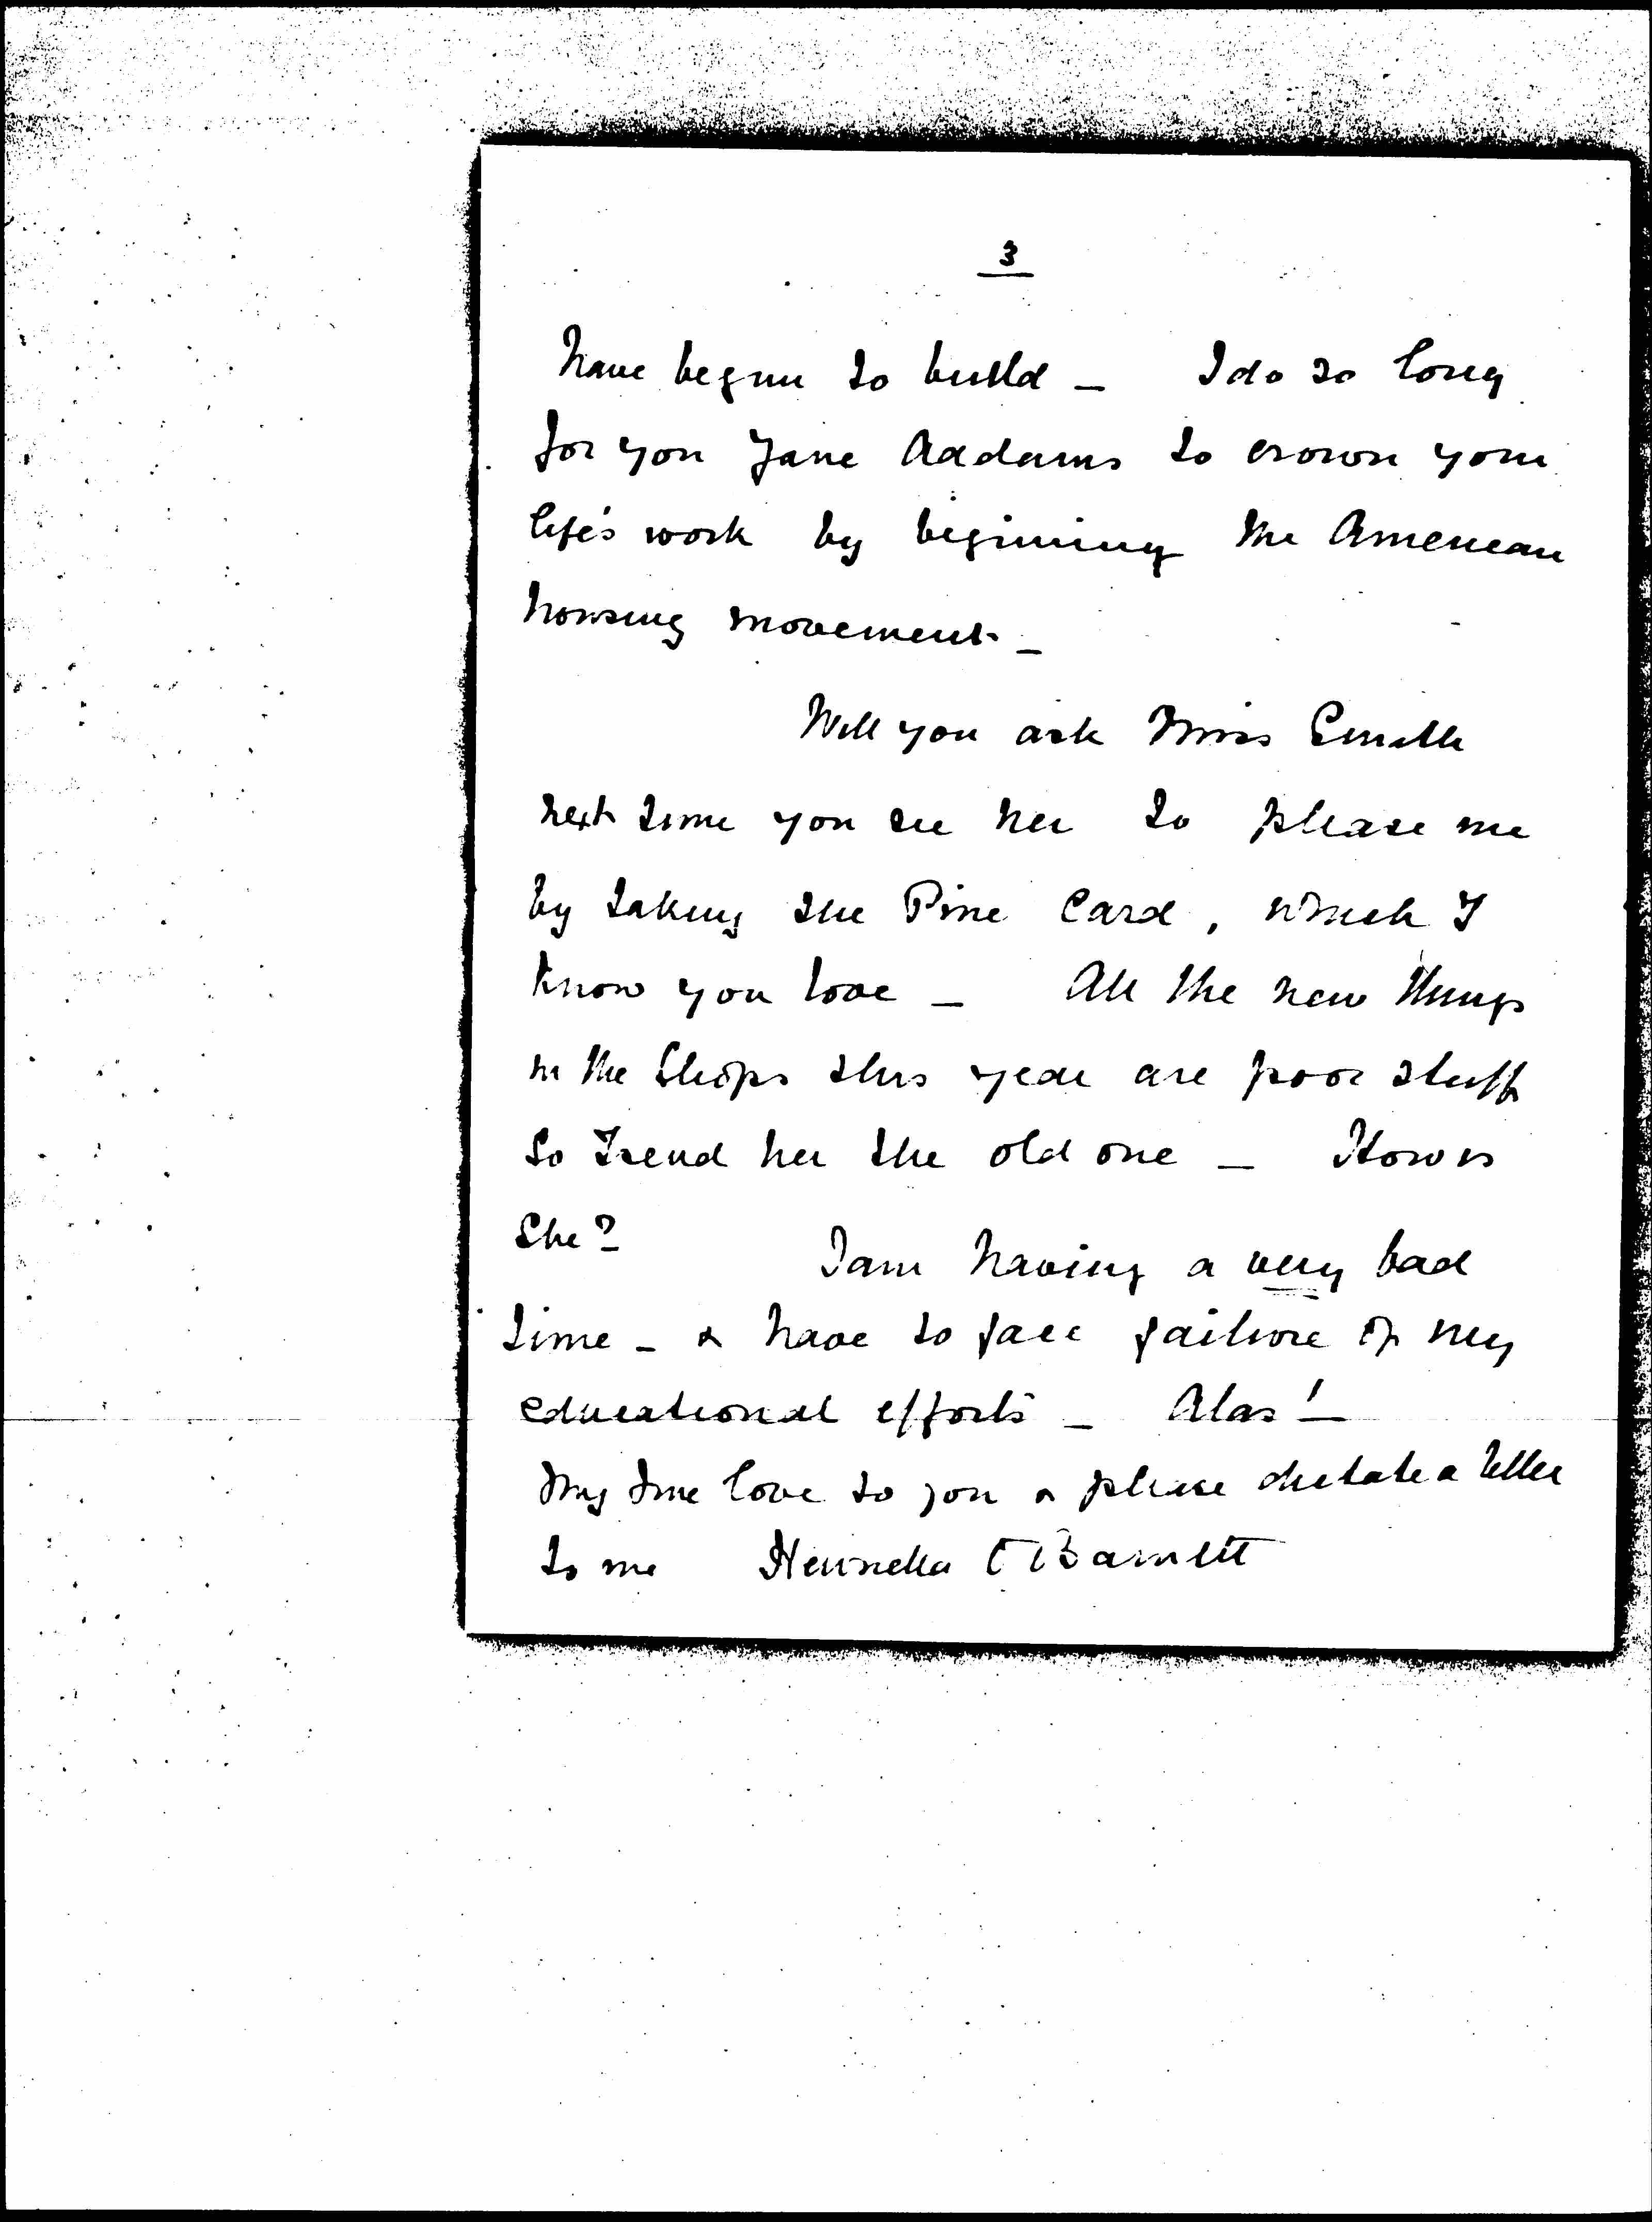 3
have begun to build – I do so long
for you Jane Addams to crown your
life's work by beginning the American
housing movement –
Will you ask Miss Smith
next time you see her to please me
by taking the Pine Card, which I
know you love – All the new things
in the Shops this year are poor stuff
so I send her the old one – How is
She?
I am having a very bad
time – & have to face failure of my
educational efforts – Alas! –
My true love to you & please dictate a letter
to me Henrietta O Barnett